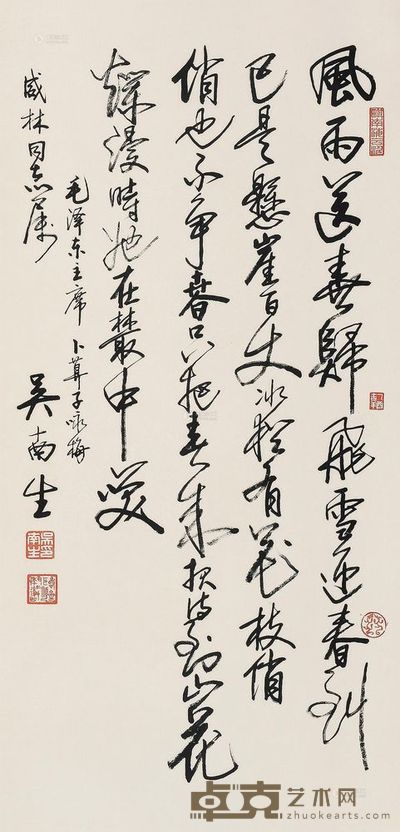 風雨送春歸飛雪迎春到
已是懸崖百丈冰猶有花枝俏
俏也不争春只把春来报待到山花
爛漫時她在叢中笑
毛泽东主席卜算子咏梅
咸林同志属
吴南生
卓克艺术网
zhuokearts.com